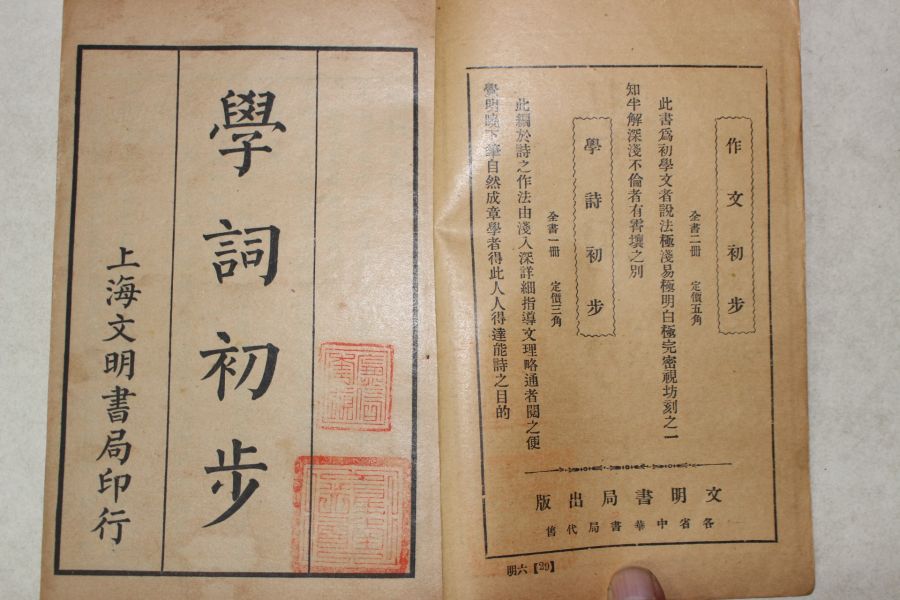 作文初步
全書二冊　定價五角
此書爲初學文者說法極淺易極明白極完密視坊刻之一
知半解深淺不倫者有霄壤之別
學詩初步
全書一冊　定價三角
此編於詩之作法由淺入深詳細指導文理略通者閱之便
覺明曉下筆自然成章學者得此人人得達能詩之目的
文明書局出版
各省中華書局代售
明六【29】
學詞初步
上海文明書局印行